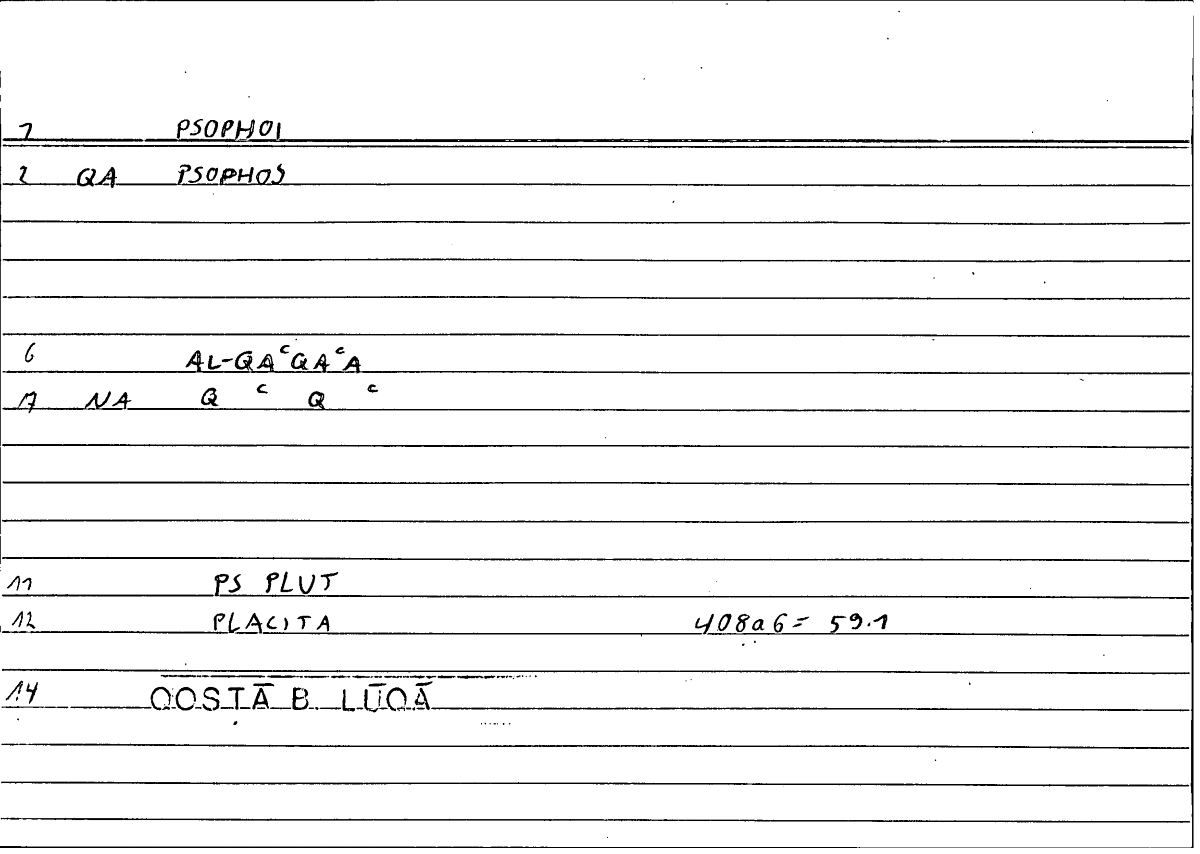 1 PSOPHOI
2 QA PSOPHOS
6 AL-QAᶜQAᶜA
17 NA Q ᶜ Q ᶜ
11 PS PLUT
12 PLACITA 408a6= 59.1
14 QOSṬĀ B. LŪQĀ